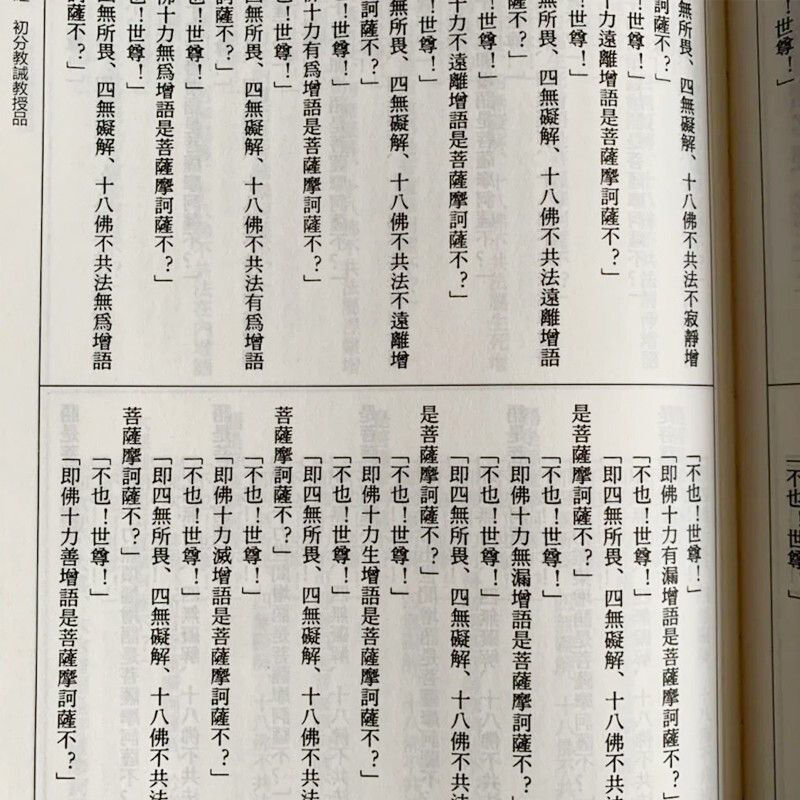 ！世尊！」
「不也！世尊！」
無所畏、四無礙解、十八佛不共法不寂靜增
訶薩不？」
！世尊！」
十力遠離增語是菩薩摩訶薩不？」
！世尊！」
無所畏、四無礙解、十八佛不共法遠離增語
薩不？」
！世尊！」
十力不遠離增語是菩薩摩訶薩不？」
！世尊！」
無所畏、四無礙解、十八佛不共法不遠離增
訶薩不？」
！世尊！」
佛十力有爲增語是菩薩摩訶薩不？」
！世尊！」
四無所畏、四無礙解、十八佛不共法有爲增語
訶薩不？」
也！世尊！」
佛十力無爲增語是菩薩摩訶薩不？」
也！世尊！」
四無所畏、四無礙解、十八佛不共法無爲增語
訶薩不？」
「不也！世尊！」
「即佛十力有漏增語是菩薩摩訶薩不？」
「不也！世尊！」
「即四無所畏、四無礙解、十八佛不共法
是菩薩摩訶薩不？」
「不也！世尊！」
「即佛十力無漏增語是菩薩摩訶薩不？」
「不也！世尊！」
「即四無所畏、四無礙解、十八佛不共法
是菩薩摩訶薩不？」
「不也！世尊！」
「即佛十力生增語是菩薩摩訶薩不？」
「不也！世尊！」
「即四無所畏、四無礙解、十八佛不共法
菩薩摩訶薩不？」
「不也！世尊！」
「即佛十力滅增語是菩薩摩訶薩不？」
「不也！世尊！」
「即四無所畏、四無礙解、十八佛不共法
菩薩摩訶薩不？」
「不也！世尊！」
「即佛十力善增語是菩薩摩訶薩不？」
初分教誡教授品